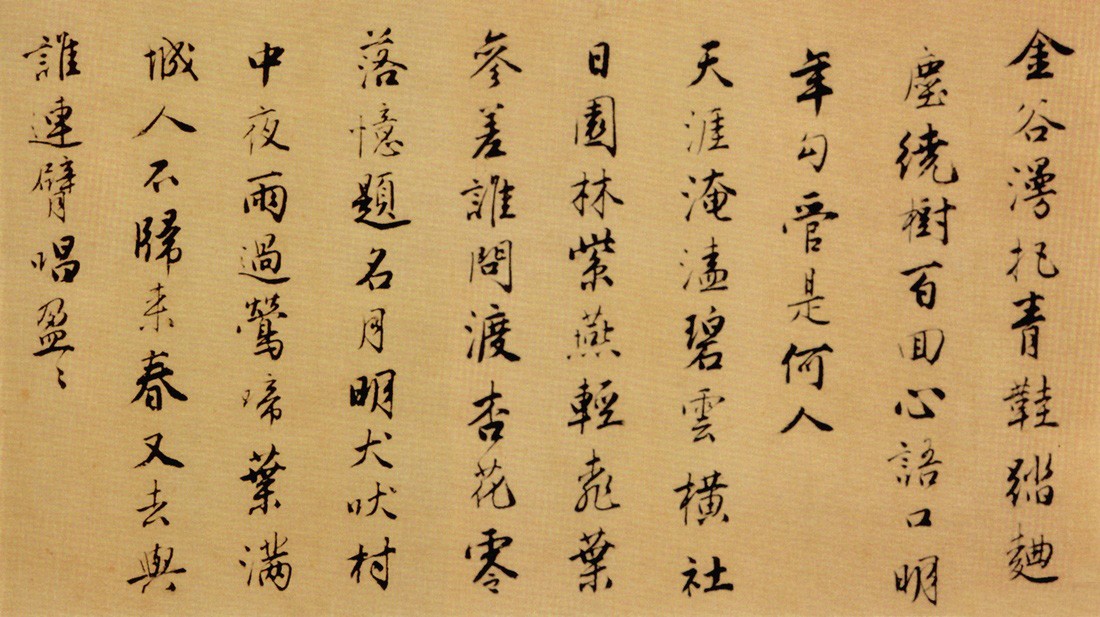 金谷漫把青鞋踏麯
塵繞樹百回心語口明
年勾管是何人
天涯淹溘碧雲橫社
日園林紫燕輕桃葉
參差誰問渡杏花零
落憶題名月明犬吠村
中夜雨過鶯啼葉滿
城人不歸來春又去與
誰連臂唱盈〻